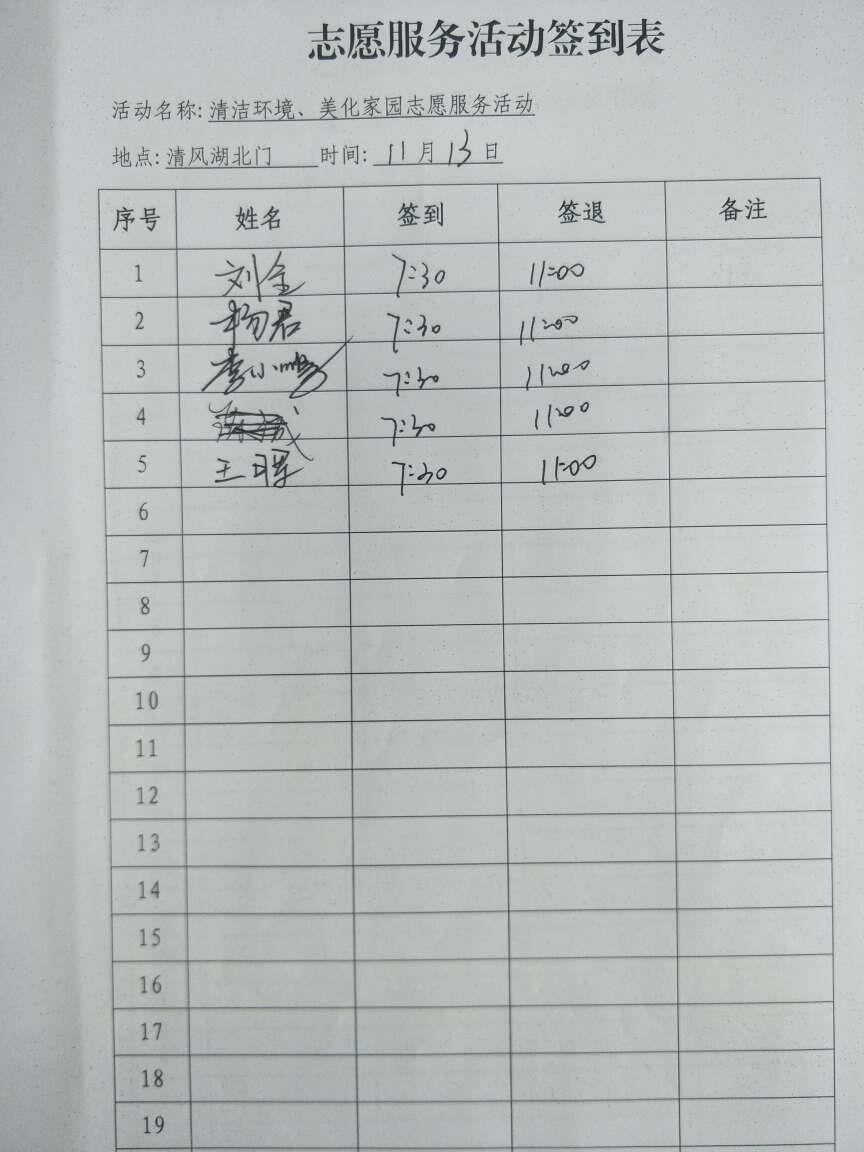 志愿服务活动签到表
活动名称: 清洁环境、美化家园志愿服务活动
地点: 清风湖北门 时间: 11月13日
序号 姓名 签到 签退 备注
1 刘全 7:30 11:00
2 杨君 7:30 11:00
3 李小鹏 7:30 11:00
4 7:30 11:00
5 王晖 7:30 11:00
6
7
8
9
10
11
12
13
14
15
16
17
18
19